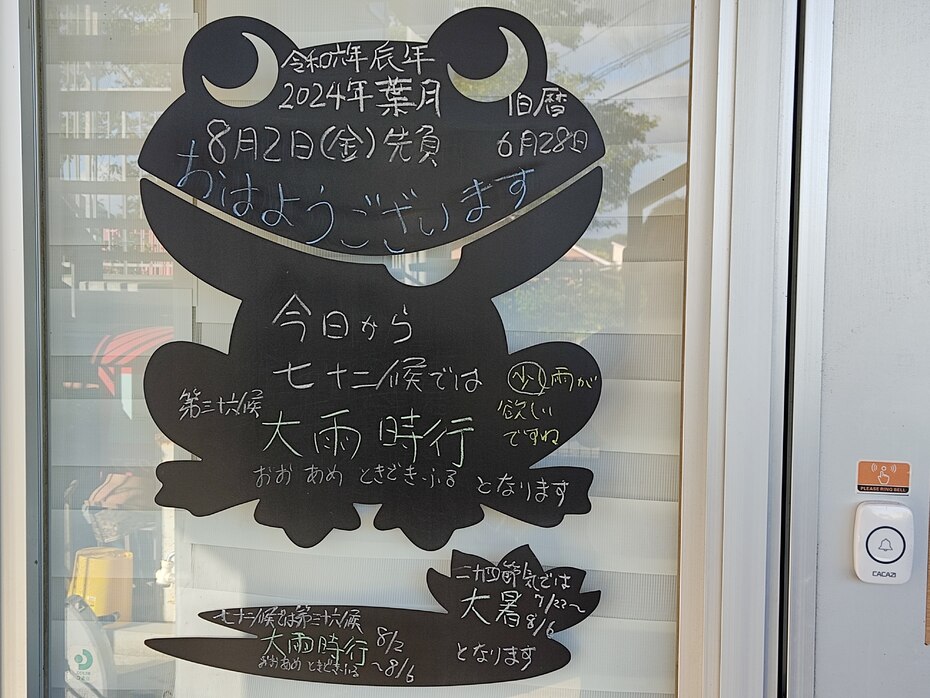 令和六年辰年
2024年葉月
旧暦
8月2日(金)先負
6月28日
おはようございます
今日から
七十二候では
第三十六候
大雨時行
おお あめ ときどき ふる
となります
少し雨が
欲しい
ですね
二十四節気では
大暑 7/22〜
8/6
となります
七十二候では第三十六候
大雨時行 8/2
おおあめ ときどきふる 〜8/6
PLEASE RING BELL
CACAZI